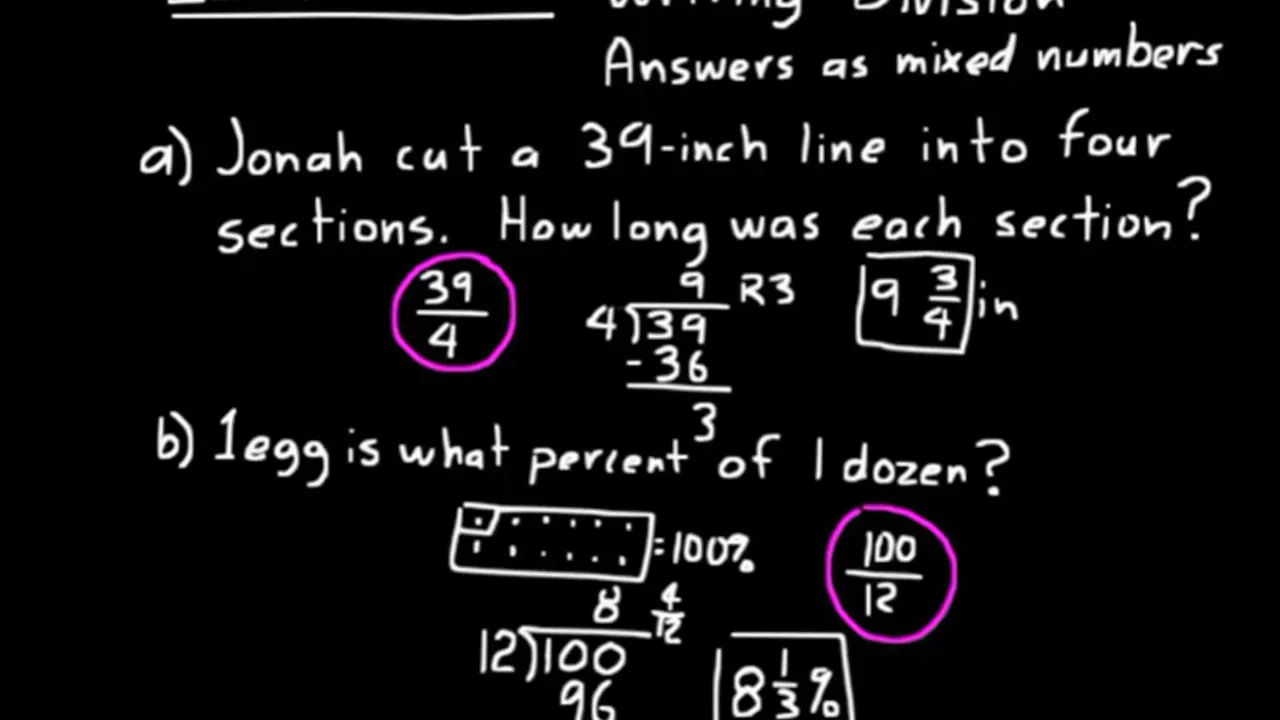 Writing Division
Answers as mixed numbers
a) Jonah cut a 39-inch line into four
sections. How long was each section?
39/4
9 R3
4)39
-36
3
9 3/4 in
b) 1 egg is what percent of 1 dozen?
=100%
100/12
8 4/12
12)100
96
8 1/3 %